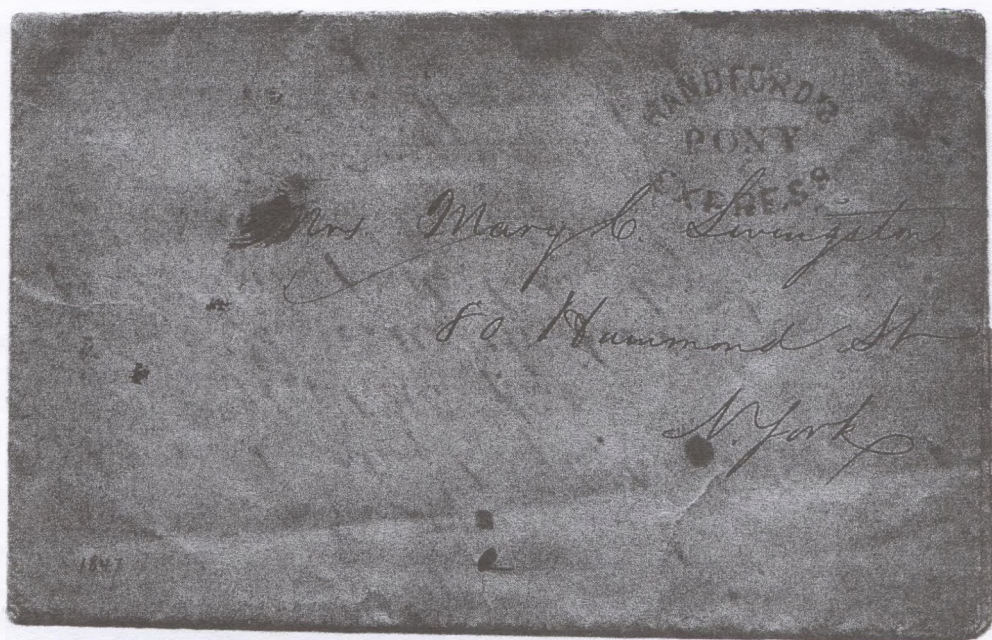 HANDFORD'S
PONY
EXPRESS.
Mrs. Mary C. Livingston
80 Hammond St
N. York
1847